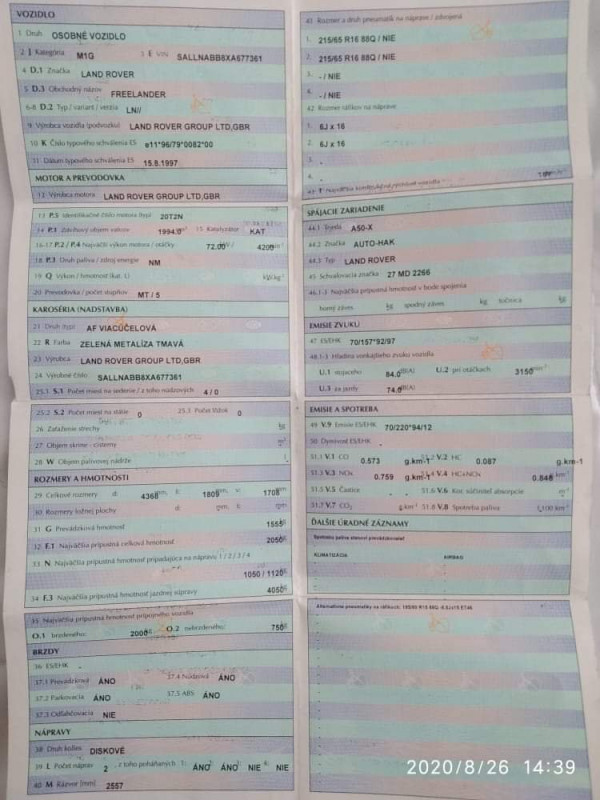 VOZIDLO
1 Druh OSOBNÉ VOZIDLO
2 J Kategória M1G 3 E VIN SALLNABB8XA677361
4 D.1 Značka LAND ROVER
5 D.3 Obchodný názov FREELANDER
6-8 D.2 Typ / variant / verzia LN//
9 Výrobca vozidla (podvozku) LAND ROVER GROUP LTD,GBR
10 K Číslo typového schválenia ES e11*96/79*0082*00
11 Dátum typového schválenia ES 15.8.1997
MOTOR A PREVODOVKA
12 Výrobca motora LAND ROVER GROUP LTD,GBR
13 P.5 Identifikačné číslo motora (typ) 20T2N
14 P.1 Zdvihový objem valcov 1994.0 15 Katalyzátor KAT
16-17 P.2 / P.4 Najväčší výkon motora / otáčky 72.00 / 4200
18 P.3 Druh paliva / zdroj energie NM
19 Q Výkon / hmotnosť (kat. L) kW.kg-1
20 Prevodovka / počet stupňov MT / 5
KAROSÉRIA (NADSTAVBA)
21 Druh (typ) AF VIACÚČELOVÁ
22 R Farba ZELENÁ METALÍZA TMAVÁ
23 Výrobca LAND ROVER GROUP LTD,GBR
24 Výrobné číslo SALLNABB8XA677361
25.1 S.1 Počet miest na sedenie / z toho núdzových 4 / 0
25.2 S.2 Počet miest na státie 0 25.3 Počet lôžok 0
26 Zaťaženie strechy kg
27 Objem skrine - cisterny m3
28 W Objem palivovej nádrže
ROZMERY A HMOTNOSTI
29 Celkové rozmery d: 4368 š: 1809 v: 1708
30 Rozmery ložnej plochy d: š:
31 G Prevádzková hmotnosť 1555
32 F.1 Najväčšia prípustná celková hmotnosť 2050
33 N Najväčšia prípustná hmotnosť pripadajúca na nápravu 1 / 2 / 3 / 4
1050 / 1120
34 F.3 Najväčšia prípustná hmotnosť jazdnej súpravy 4050
35 Najväčšia prípustná hmotnosť prípojného vozidla
O.1 brzdeného: 2000 O.2 nebrzdeného: 750
BRZDY
36 ES/EHK
37.1 Prevádzková ÁNO 37.4 Núdzová ÁNO
37.2 Parkovacia ÁNO 37.5 ABS ÁNO
37.3 Odľahčovacia NIE
NÁPRAVY
38 Druh kolies DISKOVÉ
39 L Počet náprav 2 , z toho poháňaných 1: ÁNO ÁNO NIE NIE
40 M Rázvor [mm] 2557
41 Rozmer a druh pneumatík na náprave / zdvojená
1. 215/65 R16 88Q / NIE
2. 215/65 R16 88Q / NIE
3. - / NIE
4. - / NIE
42 Rozmer ráfikov na náprave
1. 6J x 16
2. 6J x 16
3. -
4. -
SPÁJACIE ZARIADENIE
44.1 Trieda A50-X
44.2 Značka AUTO-HAK
44.3 Typ LAND ROVER
45 Schvaľovacia značka 27 MD 2266
46.1-3 Najväčšia prípustná hmotnosť v bode spojenia
horný záves kg spodný záves kg točnica kg
EMISIE ZVUKU
47 ES/EHK 70/157*92/97
48.1-3 Hladina vonkajšieho zvuku vozidla
U.1 stojaceho 84.0 dB(A) U.2 pri otáčkach 3150 min-1
U.3 za jazdy 74.0 dB(A)
EMISIE A SPOTREBA
49 V.9 Emisie ES/EHK 70/220*94/12
50 Dymivosť ES/EHK
51.1 V.1 CO 0.573 g.km-1 51.2 V.2 HC 0.087 g.km-1
51.3 V.3 NOx 0.759 g.km-1 51.4 V.4 HC+NOx 0.846
51.5 V.5 Častice 51.6 V.6 Kor. súčiniteľ absorpcie
51.7 V.7 CO2 g.km-1 51.8 V.8 Spotreba paliva l.100 km-1
ĎALŠIE ÚRADNÉ ZÁZNAMY
Spotreba paliva
KLIMATIZÁCIA AIRBAG
2020/8/26 14:39